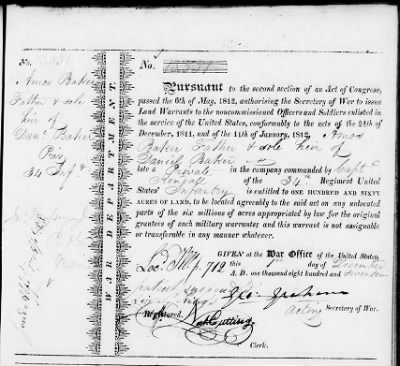 No.
Amos Baker
Father & sole
heir of
Danl Baker
Priv
34 Inft
WAR DEPARTMENT.
No.
Pursuant to the second section of an Act of Congress,
passed the 6th of May, 1812, authorising the Secretary of War to issue
Land Warrants to the noncommissioned Officers and Soldiers enlisted in
the service of the United States, conformably to the acts of the 24th of
December, 1811, and of the 11th of January, 1812, Amos
Baker Father & sole heir of
Daniel Baker
late a Private in the company commanded by Capt
of the 34th Regiment United
States' Infantry is entitled to ONE HUNDRED AND SIXTY
ACRES OF LAND, to be located agreeably to the said act on any unlocated
parts of the six millions of acres appropriated by law for the original
grantees of such military warrants; and this warrant is not assignable
or transferable in any manner whatever.
GIVEN at the War Office of the United States
this day of December
A. D. one thousand eight hundred and
Geo: Graham
Acting Secretary of War.
Registered. Nat Cutting
Clerk.